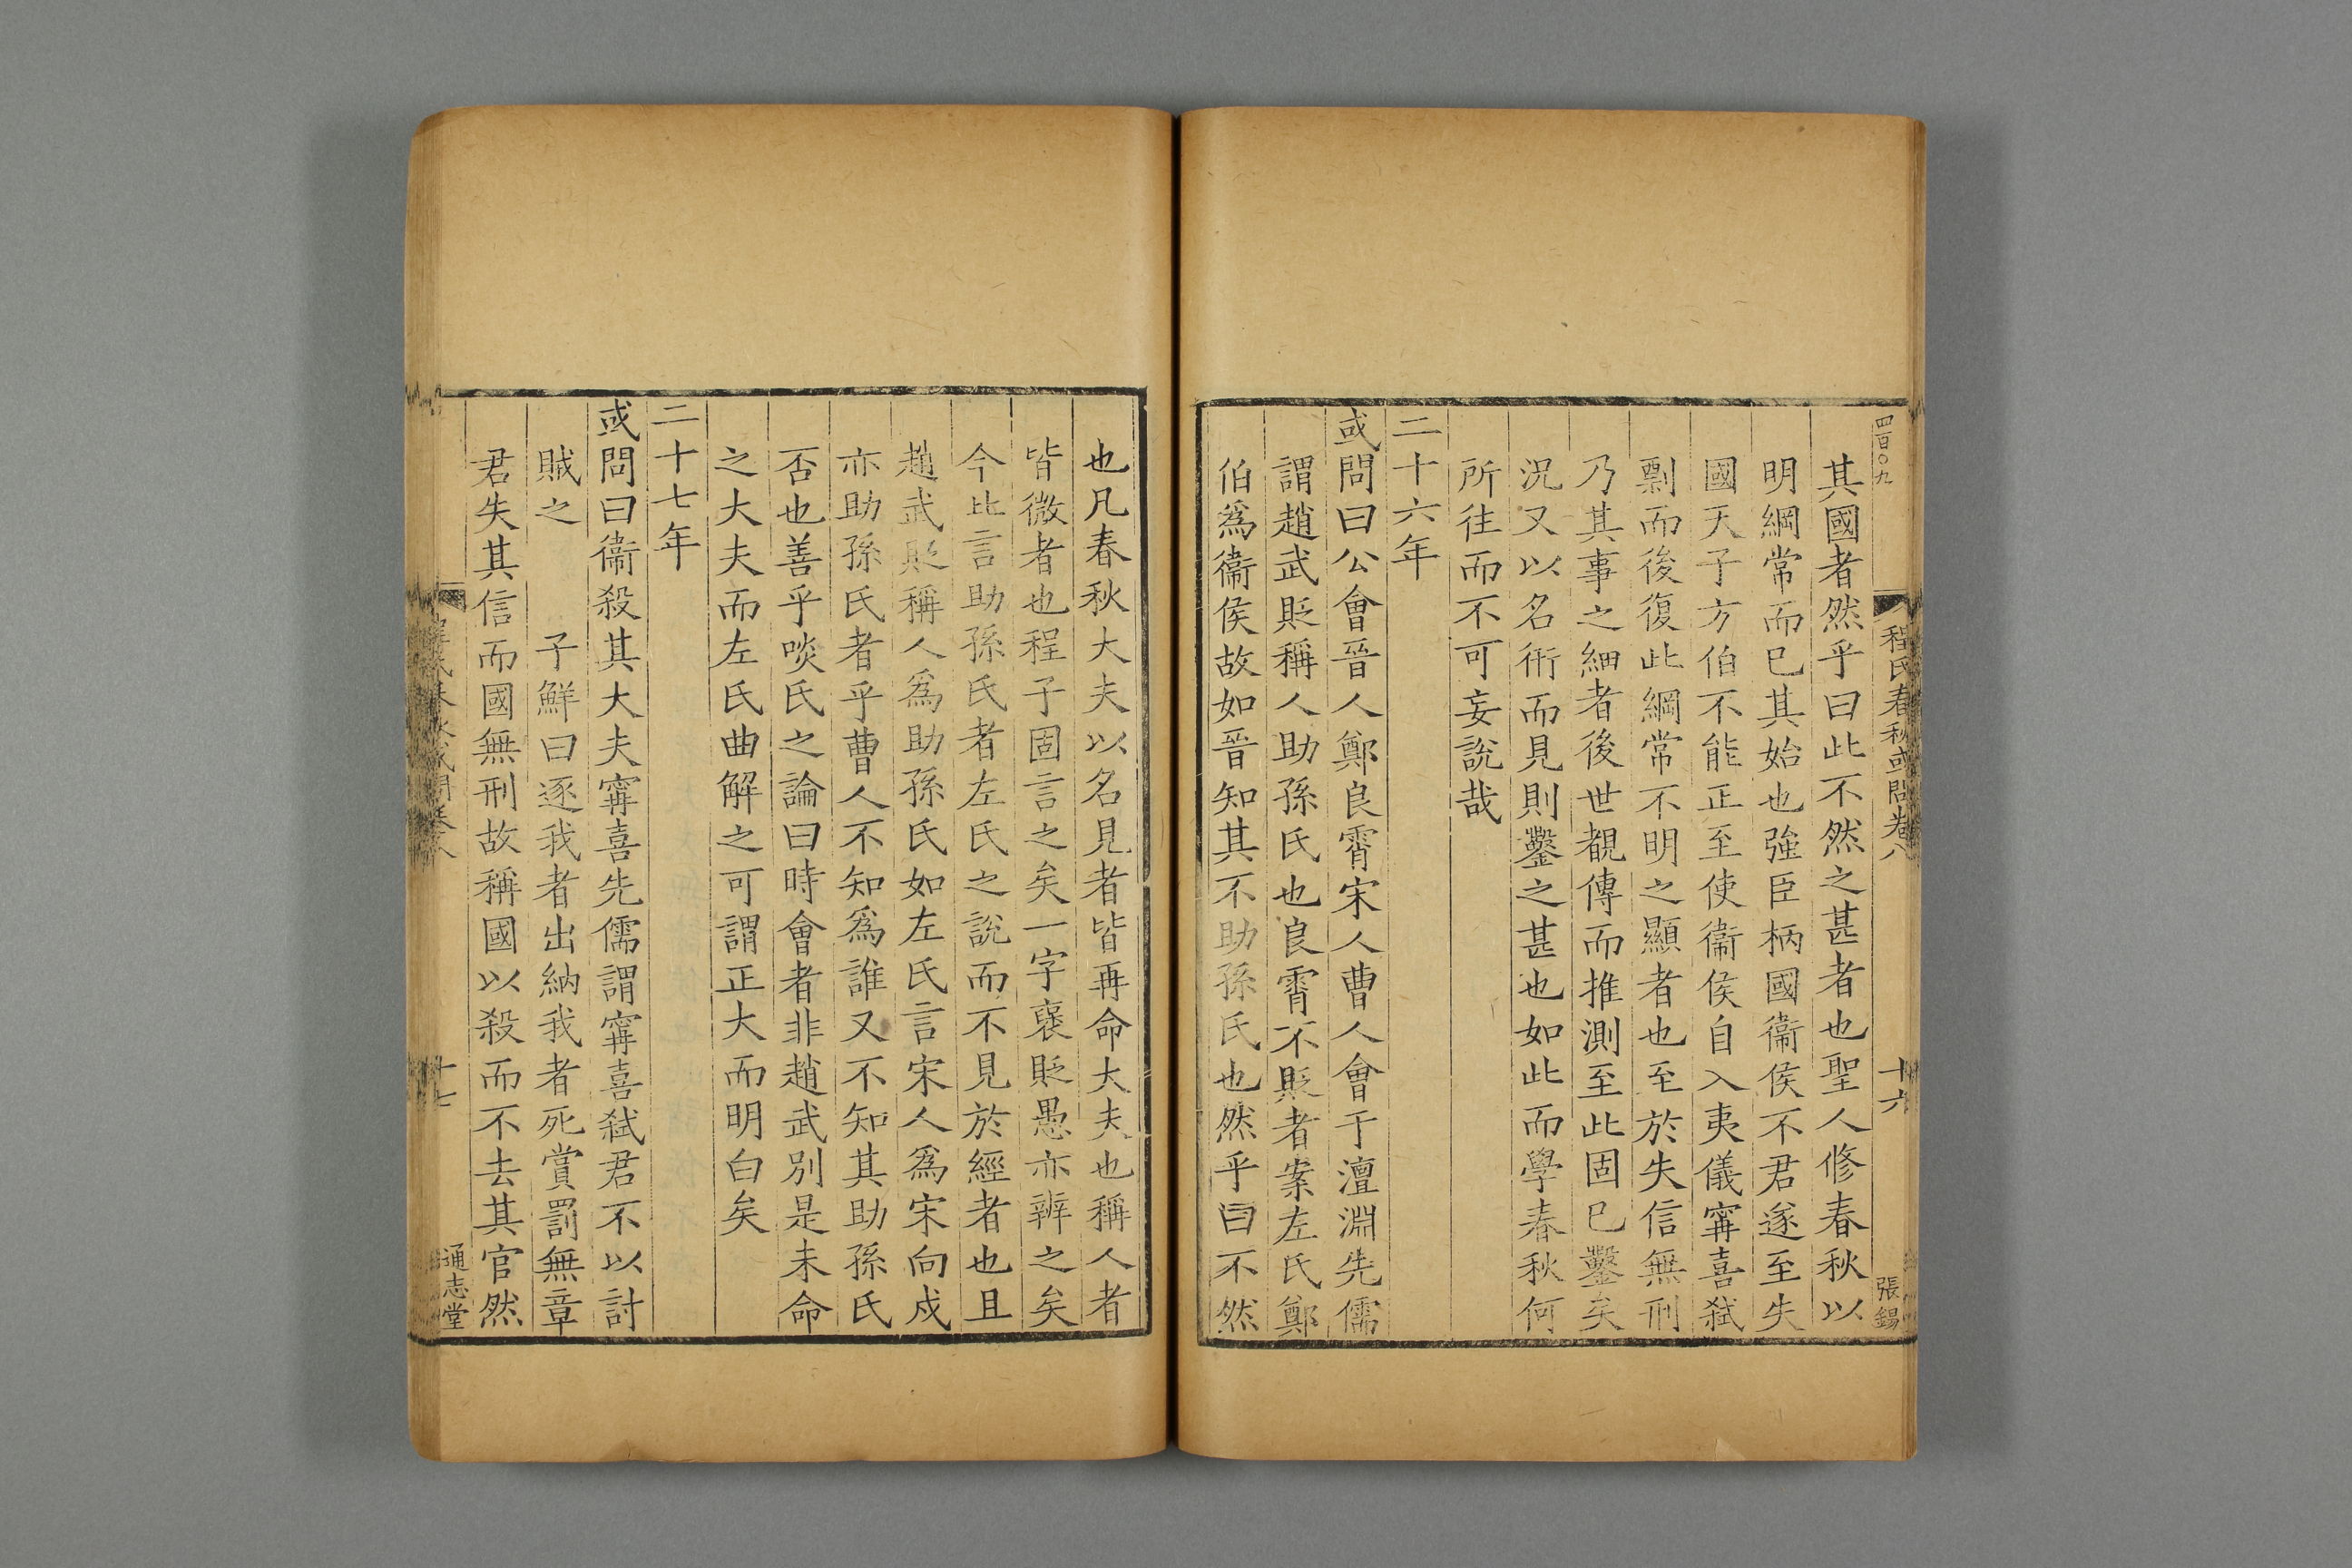 四百〇九
程氏春秋或問卷八
十六
張錫
其國者然乎曰此不然之甚者也聖人修春秋以
明綱常而已其始也強臣柄國衞侯不君遂至失
國天子方伯不能正至使衞侯自入夷儀甯喜弑
剽而後復此綱常不明之顯者也至於失信無刑
乃其事之細者後世覩傳而推測至此固已鑿矣
況又以名術而見則鑿之甚也如此而學春秋何
所往而不可妄說哉
二十六年
或問曰公會晉人鄭良霄宋人曹人會于澶淵先儒
謂趙武貶稱人助孫氏也良霄不貶者案左氏鄭
伯爲衞侯故如晉知其不助孫氏也然乎曰不然
也凡春秋大夫以名見者皆再命大夫也稱人者
皆微者也程子固言之矣一字襃貶愚亦辨之矣
今此言助孫氏者左氏之說而不見於經者也且
趙武貶稱人爲助孫氏如左氏言宋人爲宋向戍
亦助孫氏者乎曹人不知爲誰又不知其助孫氏
否也善乎啖氏之論曰時會者非趙武別是未命
之大夫而左氏曲解之可謂正大而明白矣
二十七年
或問曰衞殺其大夫甯喜先儒謂甯喜弑君不以討
賊之 子鮮曰逐我者出納我者死賞罰無章
君失其信而國無刑故稱國以殺而不去其官然
十七
通志堂